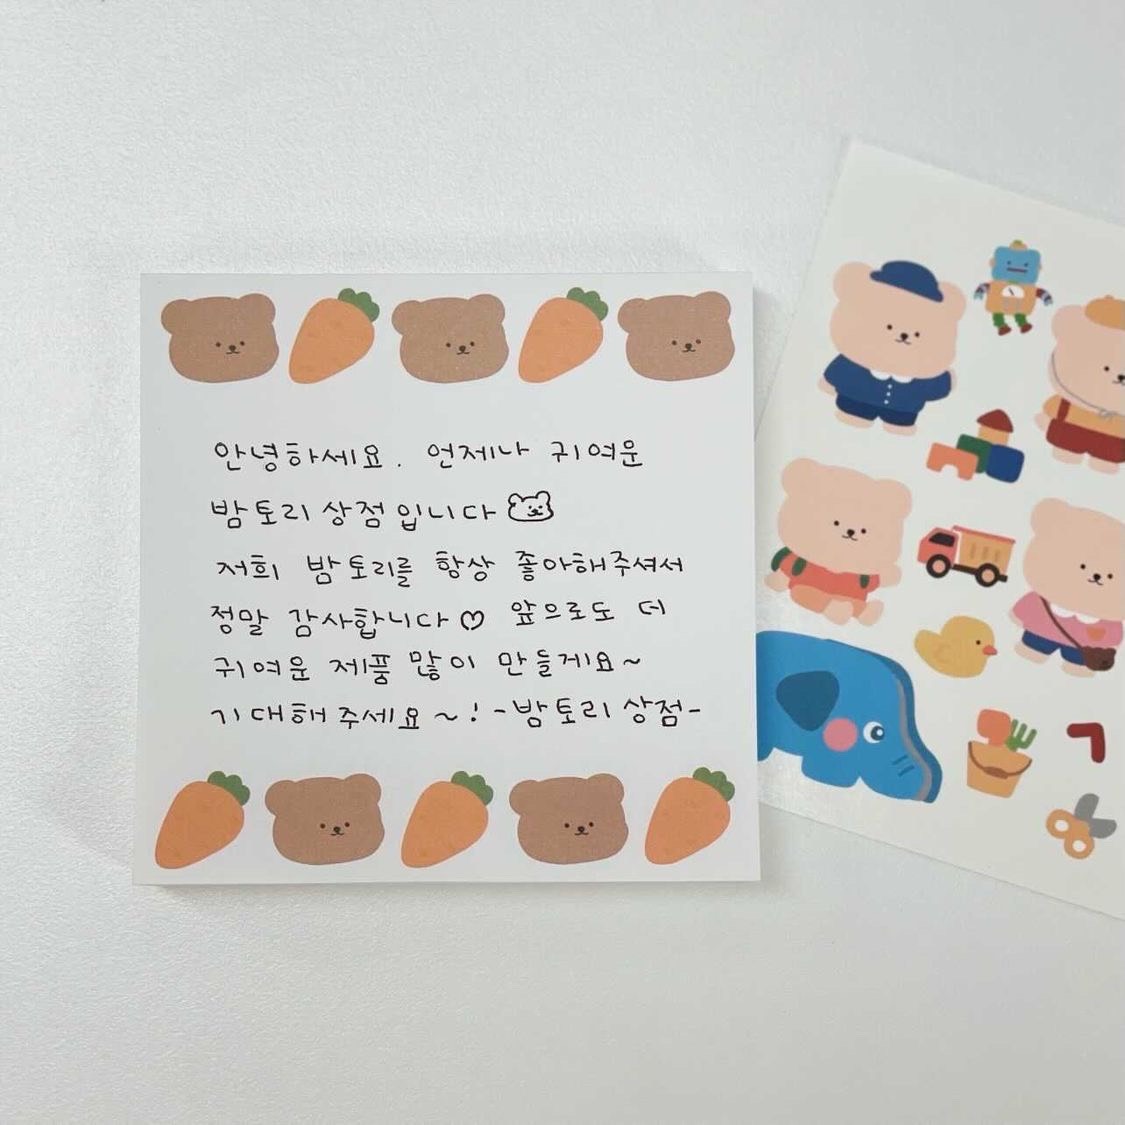 안녕하세요. 언제나 귀여운
밤토리상점입니다
저희 밤토리를 항상 좋아해주셔서
정말 감사합니다♡ 앞으로도 더
귀여운 제품 많이 만들게요~
기대해주세요~! -밤토리상점-